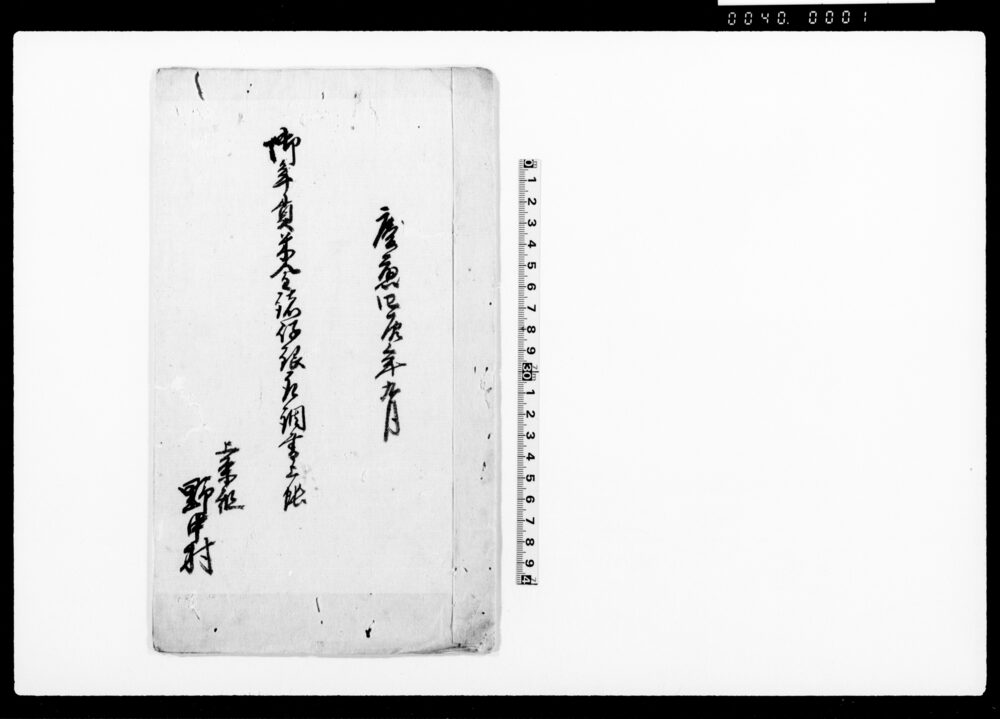 0040. 0001
慶應四辰年九月
御年貢米金諸取調書上帳
上組
野中村
0 1 2 3 4 5 6 7 8 9 30 1 2 3 4 5 6 7 8 9 4